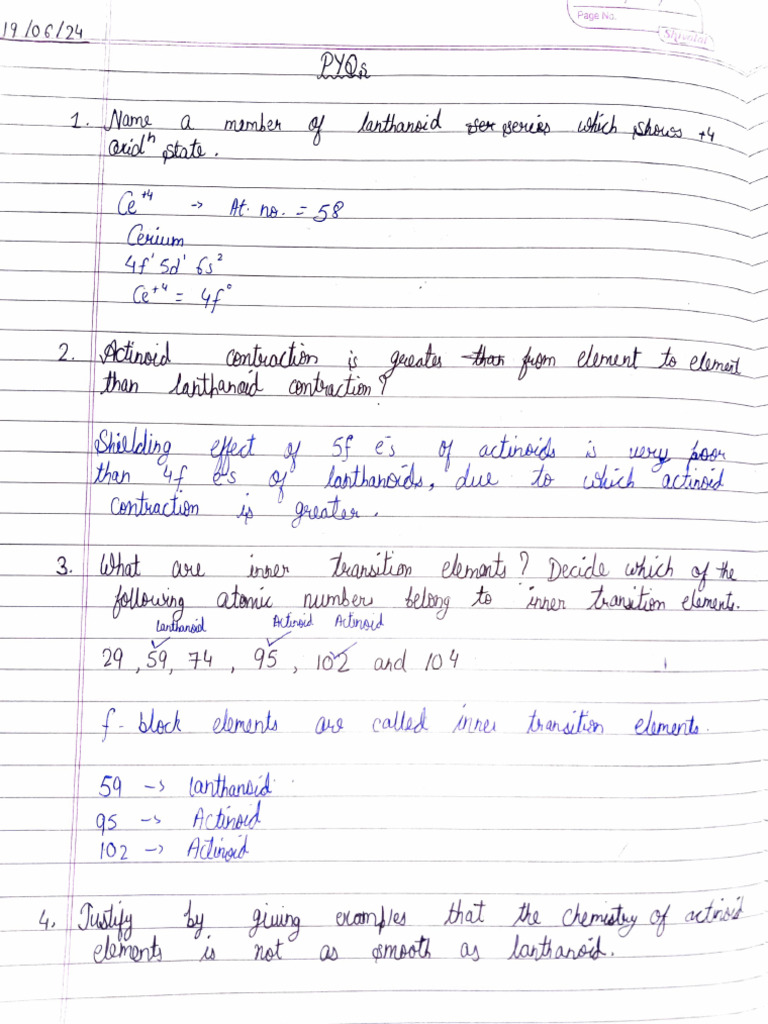 19/06/24
Page No.
Shivalal
PYQs
1. Name a member of lanthanoid ser series which shows +4
oxidⁿ state.
Ce⁺⁴ → At. no. = 58
Cerium
4f¹ 5d¹ 6s²
Ce⁺⁴ = 4f⁰
2. Actinoid contraction is greater than from element to element
than lanthanoid contraction?
Shielding effect of 5f e⁻s of actinoids is very poor
than 4f e⁻s of lanthanoids, due to which actinoid
contraction is greater.
3. What are inner transition elements? Decide which of the
following atomic number belong to inner transition elements.
lanthanoid Actinoid Actinoid
29, 59, 74, 95, 102 and 104
f-block elements are called inner transition elements.
59 → lanthanoid
95 → Actinoid
102 → Actinoid
4. Justify by giving examples that the chemistry of actinoid
elements is not as smooth as lanthanoid.